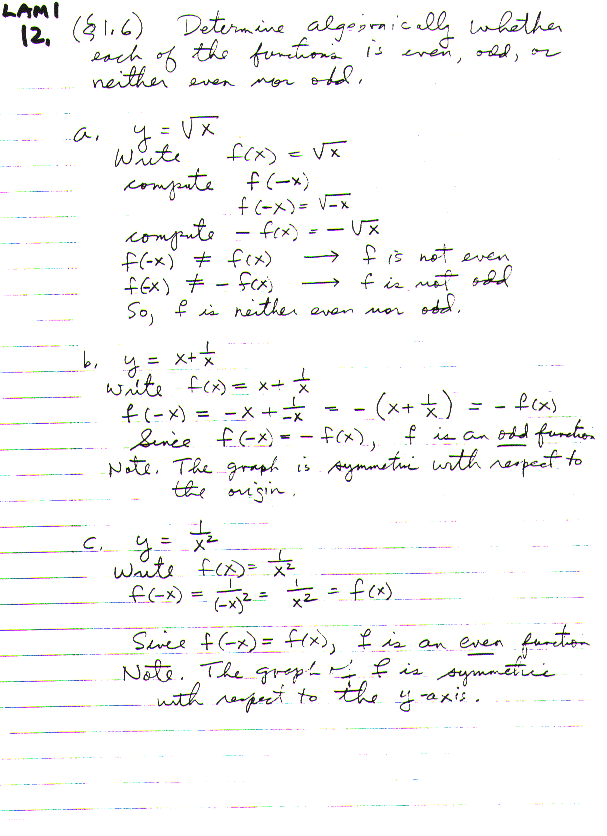 LAM1
12. (§1.6) Determine algebraically whether
each of the functions is even, odd, or
neither even nor odd.
a. y = √x
Write f(x) = √x
compute f(-x)
f(-x) = √-x
compute - f(x) = - √x
f(-x) ≠ f(x) → f is not even
f(-x) ≠ - f(x) → f is not odd
So, f is neither even nor odd.
b. y = x + 1/x
Write f(x) = x + 1/x
f(-x) = -x + 1/-x = - (x + 1/x) = - f(x)
Since f(-x) = - f(x), f is an odd function
Note. The graph is symmetric with respect to
the origin.
c. y = 1/x²
Write f(x) = 1/x²
f(-x) = 1/(-x)² = 1/x² = f(x)
Since f(-x) = f(x), f is an even function
Note. The graph of f is symmetric
with respect to the y-axis.